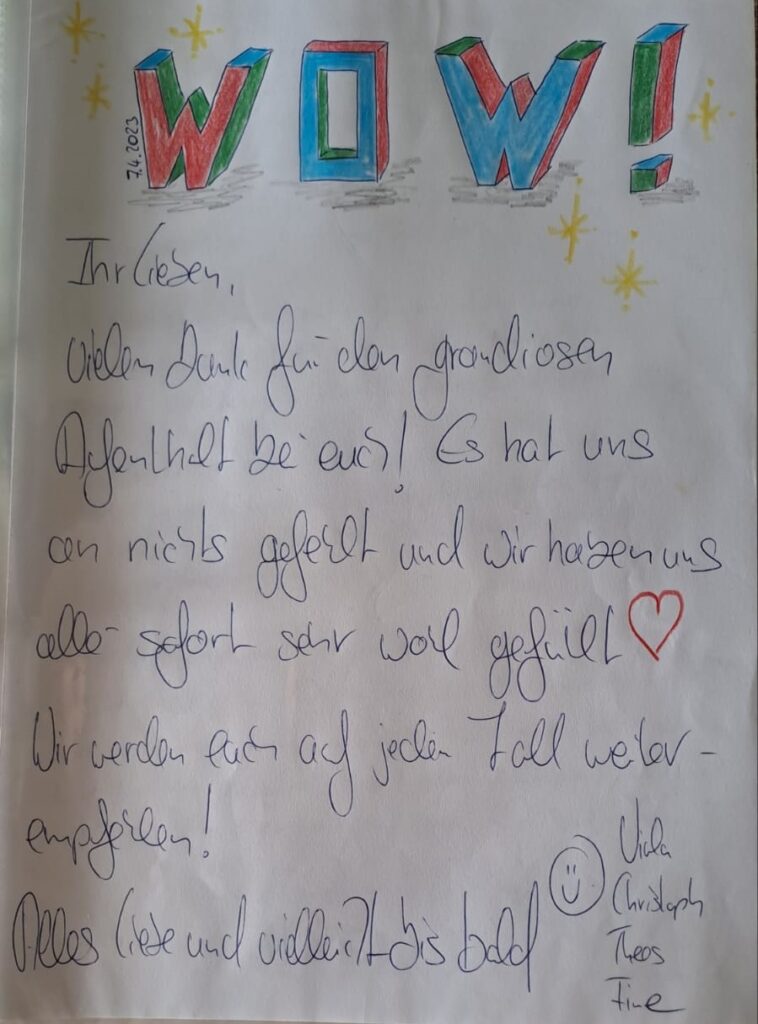 WOW!
7.4.2023
Ihr Lieben,
vielen Dank für den grandiosen
Aufenthalt bei euch! Es hat uns
an nichts gefehlt und wir haben uns
alle sofort sehr wohl gefühlt
Wir werden euch auf jeden Fall weiter-
empfehlen!
Alles Liebe und vielleicht bis bald
Viola
Christoph
Theos
Fine